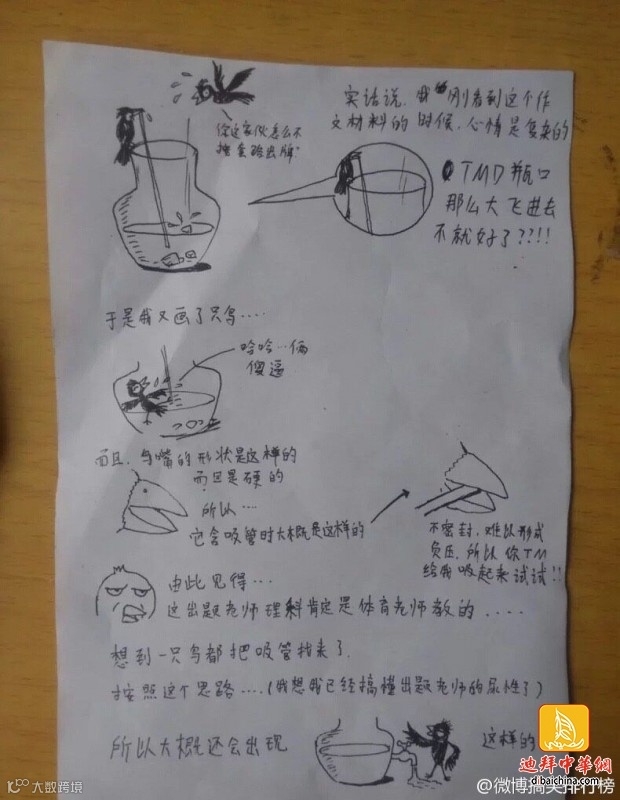 实话说,我刚看到这个作
文材料的时候,心情是复杂的
你这家伙怎么不
按套路出牌"
TMD瓶口
那么大飞进去
不就好了???!!!
于是我又画了只鸟....
哈哈…俩
傻逼
而且,鸟嘴的形状是这样的
而且是硬的
所以....
它含吸管时大概是这样的
不密封,难以形成
负压,所以你TM
给我吸起来试试!!
由此见得...
这出题老师理科肯定是体育老师教的.....
想到一只鸟都把吸管找来了.
按照这个思路....(我想我已经搞懂出题老师的尿性了)
所以大概还会出现
这样的
迪拜中華網
dibaichina.com
大数跨境
@微博搞笑排行榜